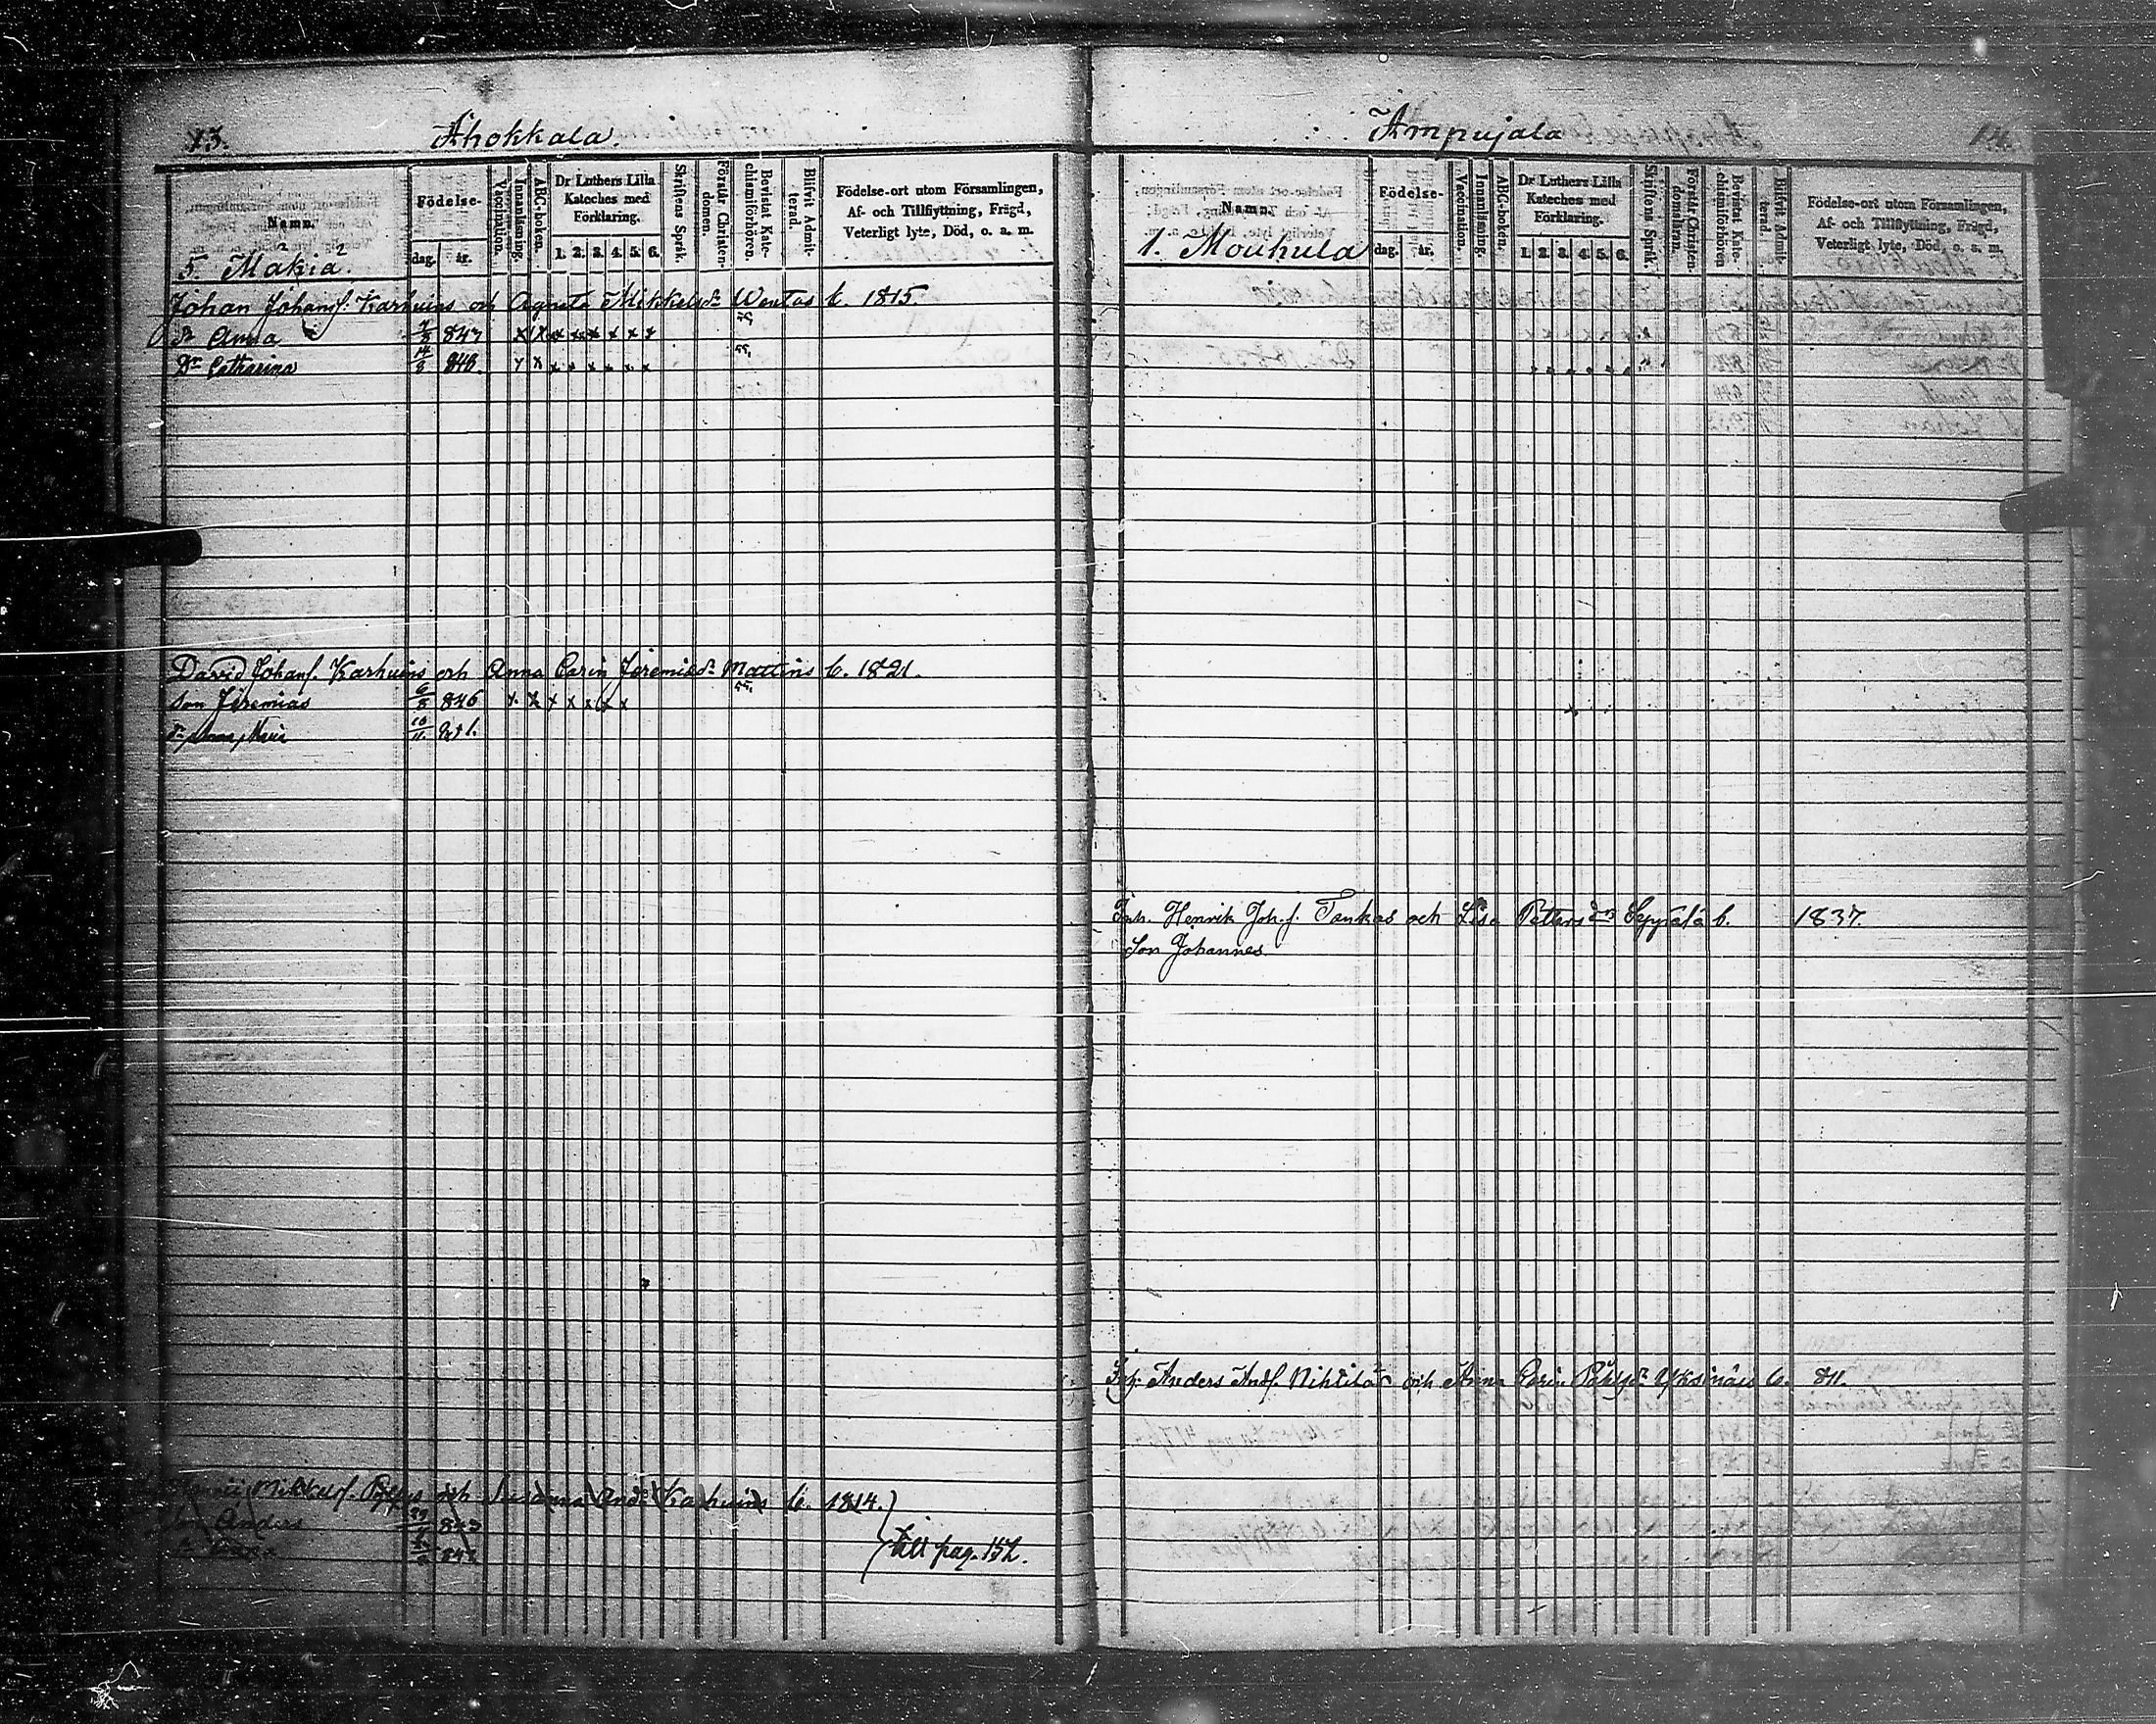 13.
Ahokkala.
Namn.
Födelse-
dag. år.
Vaccination.
Innanläsning.
ABC-boken.
Dr Luthers Lilla Kateches med Förklaring.
1. 2. 3. 4. 5. 6.
Skriftens Språk.
Förstår Christendomen.
Bevistat Katechismiförhören.
Blifvit Admitterad.
Födelse-ort utom Församlingen,
Af- och Tillflyttning, Frägd,
Veterligt lyte, Död, o. a. m.
5. Mäkiä.
Johan Johansf. Karhuins och Agneta Mikkelsdr Wentas b. 1815.
dr Anna 847 x x x x x x x x
Dr Catharina 14/8 840. x x x x x x x x
David Johansf. Karhuins och Anna Carin Jeremiædr Mattins b. 1821.
Son Jeremias 6/8 846 x x x x x x x
dr Anna Maria 10/11.
Mikkelsf. och Susanna Andr Karhuins b. 1814.
Anders 843
842
till pag. 152.
Ampujala
Namn.
Födelse-
dag. år.
Vaccination.
Innanläsning.
ABC-boken.
Dr Luthers Lilla Kateches med Förklaring.
1. 2. 3. 4. 5. 6.
Skriftens Språk.
Förstå Christendomsläran.
Bevistat Katechismiförhören
Blifvit Admitterad.
Födelse-ort utom Församlingen,
Af- och Tillflyttning, Frägd,
Veterligt lyte, Död, o. a. m.
1. Moukula
Inh. Henrik Joh.f. Tankas och Lisa Pettersdr Seppälä b. 1837.
Son Johannes.
Inh. Anders Andf. Nikkilä och Anna Carin b.